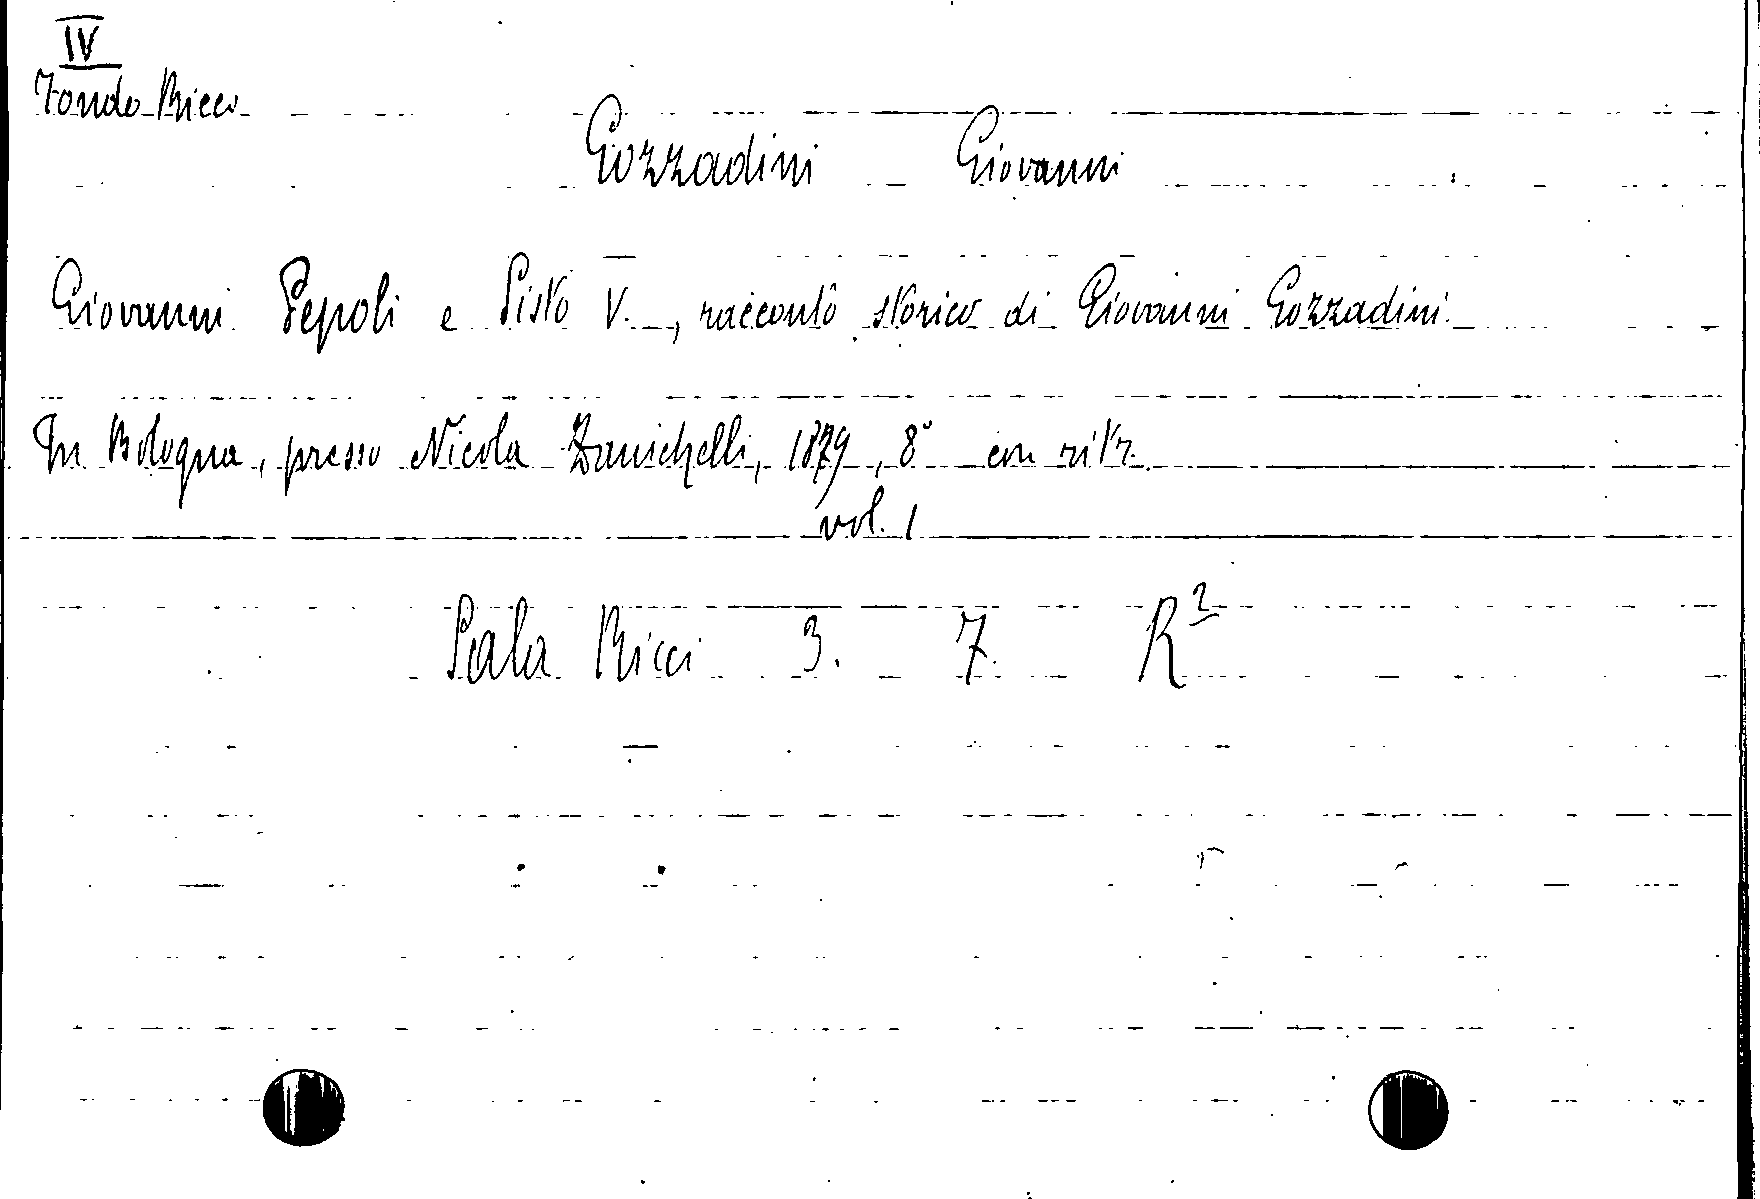 IV
Fondo Ricci
Gozzadini Giovanni
Giovanni Pepoli e Sisto V., racconto storico di Giovanni Gozzadini.
In Bologna, presso Nicola Zanichelli, 1879, 8° con ritr.
vol. 1
Sala Ricci 3. 7. R²